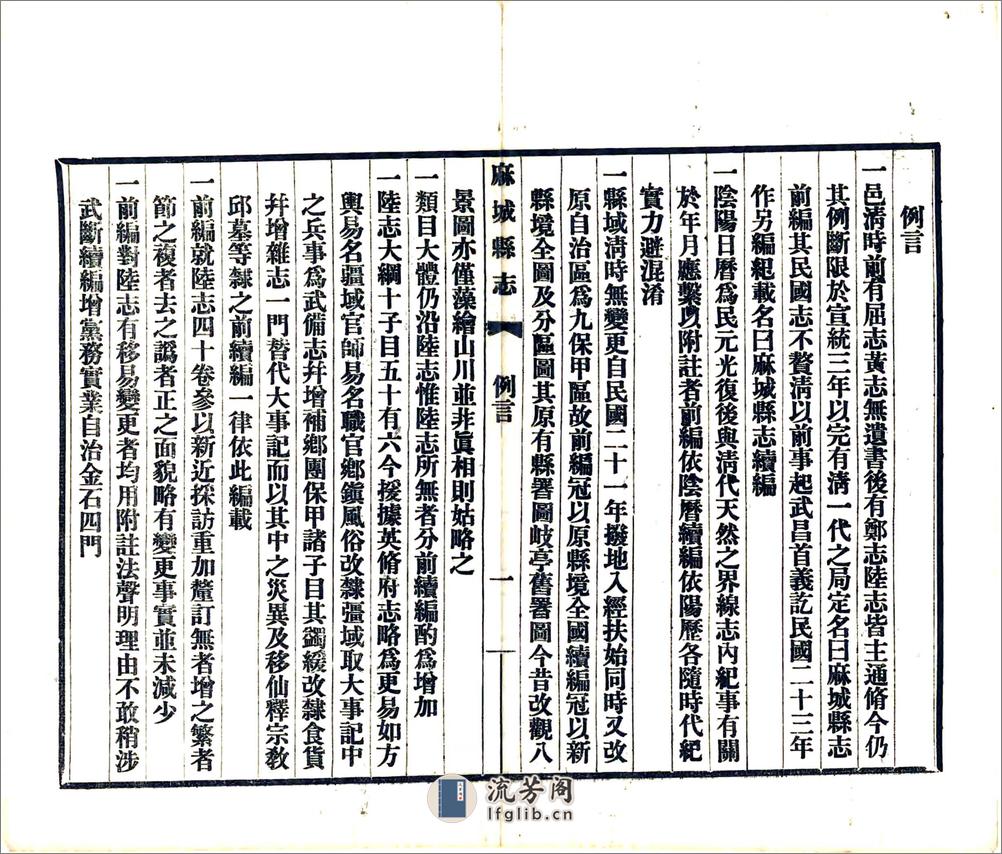 例言
一邑淸時前有屈志黃志無遺書後有鄭志陸志皆主通脩今仍
其例斷限於宣統三年以完有淸一代之局定名曰麻城縣志
前編其民國志不贅淸以前事起武昌首義訖民國二十三年
作另編紀載名曰麻城縣志續編
一陰陽日曆爲民元光復後與淸代天然之界線志內紀事有關
於年月應繫以附註者前編依陰曆續編依陽歷各隨時代紀
實力避混淆
一縣域淸時無變更自民國二十一年撥地入經扶始同時又改
原自治區爲九保甲區故前編冠以原縣境全國續編冠以新
縣境全圖及分區圖其原有縣署圖岐亭舊署圖今昔改觀八
麻城縣志 例言 一
景圖亦僅藻繪山川並非眞相則姑略之
一類目大體仍沿陸志惟陸志所無者分前續編酌爲增加
一陸志大綱十子目五十有六今援據英脩府志略爲更易如方
輿易名疆域官師易名職官鄕鎭風俗改隸彊域取大事記中
之兵事爲武備志幷增補鄕團保甲諸子目其蠲緩改隸食貨
幷增雜志一門替代大事記而以其中之災異及移仙釋宗敎
邱墓等隸之前續編一律依此編載
一前編就陸志四十卷參以新近採訪重加釐訂無者增之繁者
節之複者去之譌者正之面貌略有變更事實並未減少
一前編對陸志有移易變更者均用附註法聲明理由不敢稍涉
武斷續編增黨務實業自治金石四門
流芳阁
lfglib.cn